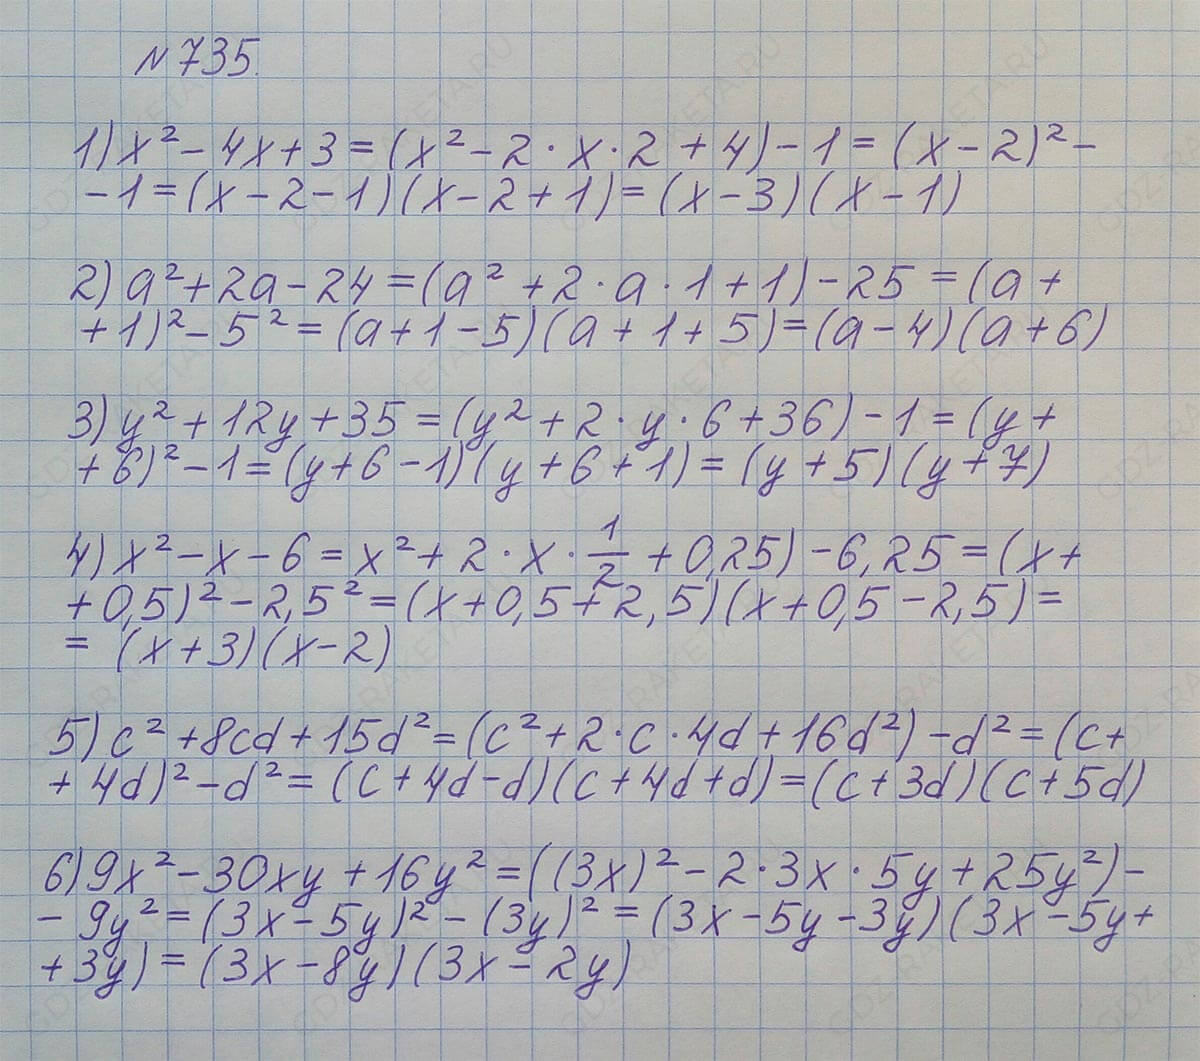 №735.
1) x² - 4x + 3 = (x² - 2 · x · 2 + 4) - 1 = (x - 2)² -
- 1 = (x - 2 - 1)(x - 2 + 1) = (x - 3)(x - 1)
2) a² + 2a - 24 = (a² + 2 · a · 1 + 1) - 25 = (a +
+ 1)² - 5² = (a + 1 - 5)(a + 1 + 5) = (a - 4)(a + 6)
3) y² + 12y + 35 = (y² + 2 · y · 6 + 36) - 1 = (y +
+ 6)² - 1 = (y + 6 - 1)(y + 6 + 1) = (y + 5)(y + 7)
4) x² - x - 6 = x² + 2 · x · 1/2 + 0,25) - 6,25 = (x +
+ 0,5)² - 2,5² = (x + 0,5 + 2,5)(x + 0,5 - 2,5) =
= (x + 3)(x - 2)
5) c² + 8cd + 15d² = (c² + 2 · c · 4d + 16d²) - d² = (c +
+ 4d)² - d² = (c + 4d - d)(c + 4d + d) = (c + 3d)(c + 5d)
6) 9x² - 30xy + 16y² = ((3x)² - 2 · 3x · 5y + 25y²) -
- 9y² = (3x - 5y)² - (3y)² = (3x - 5y - 3y)(3x - 5y +
+ 3y) = (3x - 8y)(3x - 2y)
GDZ-RAKETA.RU